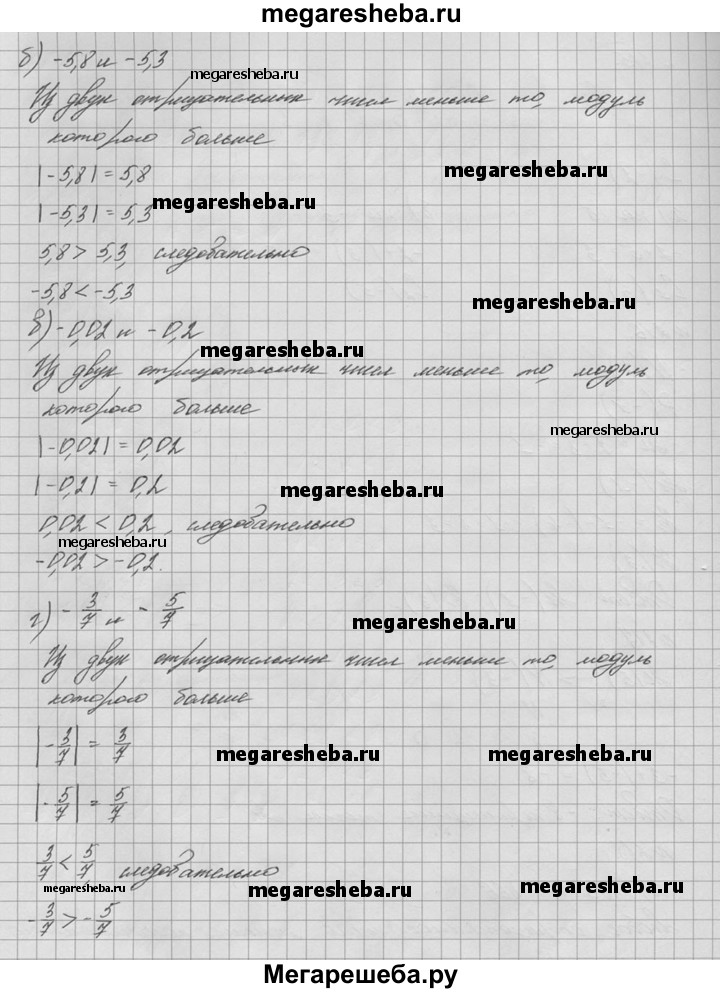 megaresheba.ru
б) -5,8 и -5,3
megaresheba.ru
Из двух отрицательных чисел меньше то, модуль
которого больше
megaresheba.ru
|-5,8| = 5,8
megaresheba.ru
|-5,3| = 5,3
5,8 > 5,3, следовательно
-5,8 < -5,3
megaresheba.ru
в) -0,02 и -0,2
megaresheba.ru
Из двух отрицательных чисел меньше то, модуль
которого больше
megaresheba.ru
|-0,02| = 0,02
|-0,2| = 0,2
megaresheba.ru
0,02 < 0,2, следовательно
megaresheba.ru
-0,02 > -0,2.
г) -3/7 и -5/7
megaresheba.ru
Из двух отрицательных чисел меньше то, модуль
которого больше
|-3/7| = 3/7
megaresheba.ru megaresheba.ru
|-5/7| = 5/7
3/7 < 5/7 следовательно
megaresheba.ru megaresheba.ru megaresheba.ru
-3/7 > -5/7
Мегарешеба.ру